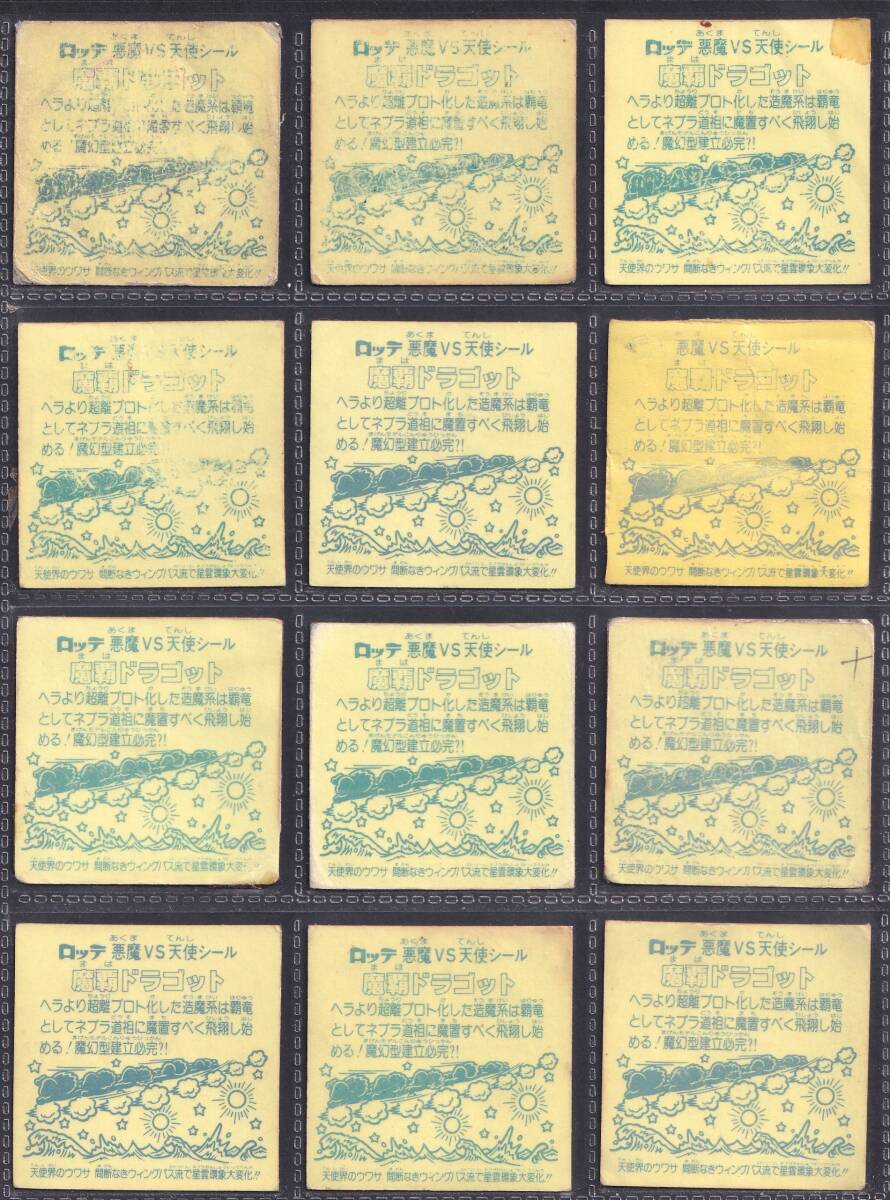 あくま てんし
ロッテ 悪魔VS天使シール
魔覇ドラゴット
ヘラより超離プロト化した造魔系は覇竜
としてネブラ道祖に魔置すべく飛翔し始
める!魔幻型建立必完
天使界のウワサ 間断なきウィングバス流で星雲環象大変化!!
あくま てんし
ロッテ 悪魔VS天使シール
まは
魔覇ドラゴット
ヘラより超離プロト化した造魔系は覇竜
としてネブラ道祖に魔置すべく飛翔し始
める!魔幻型建立必完?!
天使界のウワサ 間断なきウィングバス流で星雲環象大変化!!
あくま てんし
ロッテ 悪魔VS天使シール
まは
魔覇ドラゴット
ヘラより超離プロト化した造魔系は覇竜
としてネブラ道祖に魔置すべく飛翔し始
める!魔幻型建立必完?!
天使界のウワサ 間断なきウィングバス流で星雲環象大変化!!
てんし
ロッテ 悪魔VS天使シール
まは
魔覇ドラゴット
ヘラより超離プロト化した造魔系は覇竜
としてネブラ道祖に魔置すべく飛翔し始
める!魔幻型建立必完
天使界のウワサ 間断なきウィングバス流で星雲環象大変化!!
あくま てんし
ロッテ 悪魔VS天使シール
まは
魔覇ドラゴット
ヘラより超離プロト化した造魔系は覇竜
としてネブラ道祖に魔置すべく飛翔し始
める!魔幻型建立必完?!
天使界のウワサ 間断なきウィングバス流で星雲環象大変化!!
あくま てんし
悪魔VS天使シール
魔覇ドラゴット
ヘラより超離プロト化した造魔系は覇竜
としてネブラ道祖に魔置すべく飛翔し始
める!魔幻型建立必完?!
天使界のウワサ 間断なきウィングバス流で星雲環象大変化!!
あくま てんし
ロッテ 悪魔VS天使シール
まは
魔覇ドラゴット
ヘラより超離プロト化した造魔系は覇竜
としてネブラ道祖に魔置すべく飛翔し始
める!魔幻型建立必完?!
天使界のウワサ 間断なきウィングバス流で星雲環象大変化!!
あくま てんし
ロッテ 悪魔VS天使シール
まは
魔覇ドラゴット
ヘラより超離プロト化した造魔系は覇竜
としてネブラ道祖に魔置すべく飛翔し始
める!魔幻型建立必完?!
天使界のウワサ 間断なきウィングバス流で星雲環象大変化!!
あくま てんし
ロッテ 悪魔VS天使シール
まは
魔覇ドラゴット
ヘラより超離プロト化した造魔系は覇竜
としてネブラ道祖に魔置すべく飛翔し始
める!魔幻型建立必完?!
天使界のウワサ 間断なきウィングバス流で星雲環象大変化!!
あくま てんし
ロッテ 悪魔VS天使シール
まは
魔覇ドラゴット
ヘラより超離プロト化した造魔系は覇竜
としてネブラ道祖に魔置すべく飛翔し始
める!魔幻型建立必完?!
天使界のウワサ 間断なきウィングバス流で星雲環象大変化!!
あくま てんし
ロッテ 悪魔VS天使シール
まは
魔覇ドラゴット
ヘラより超離プロト化した造魔系は覇竜
としてネブラ道祖に魔置すべく飛翔し始
める!魔幻型建立必完?!
天使界のウワサ 間断なきウィングバス流で星雲環象大変化!!
あくま てんし
ロッテ 悪魔VS天使シール
まは
魔覇ドラゴット
ヘラより超離プロト化した造魔系は覇竜
としてネブラ道祖に魔置すべく飛翔し始
める!魔幻型建立必完?!
天使界のウワサ 間断なきウィングバス流で星雲環象大変化!!